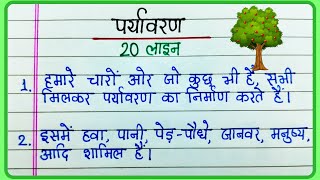 पर्यावरण
20 लाइन
1. हमारे चारों ओर जो कुछ भी हैं, सभी
मिलकर पर्यावरण का निर्माण करते हैं।
2. इसमें हवा, पानी, पेड़-पौधे, जानवर, मनुष्य,
आदि शामिल हैं।